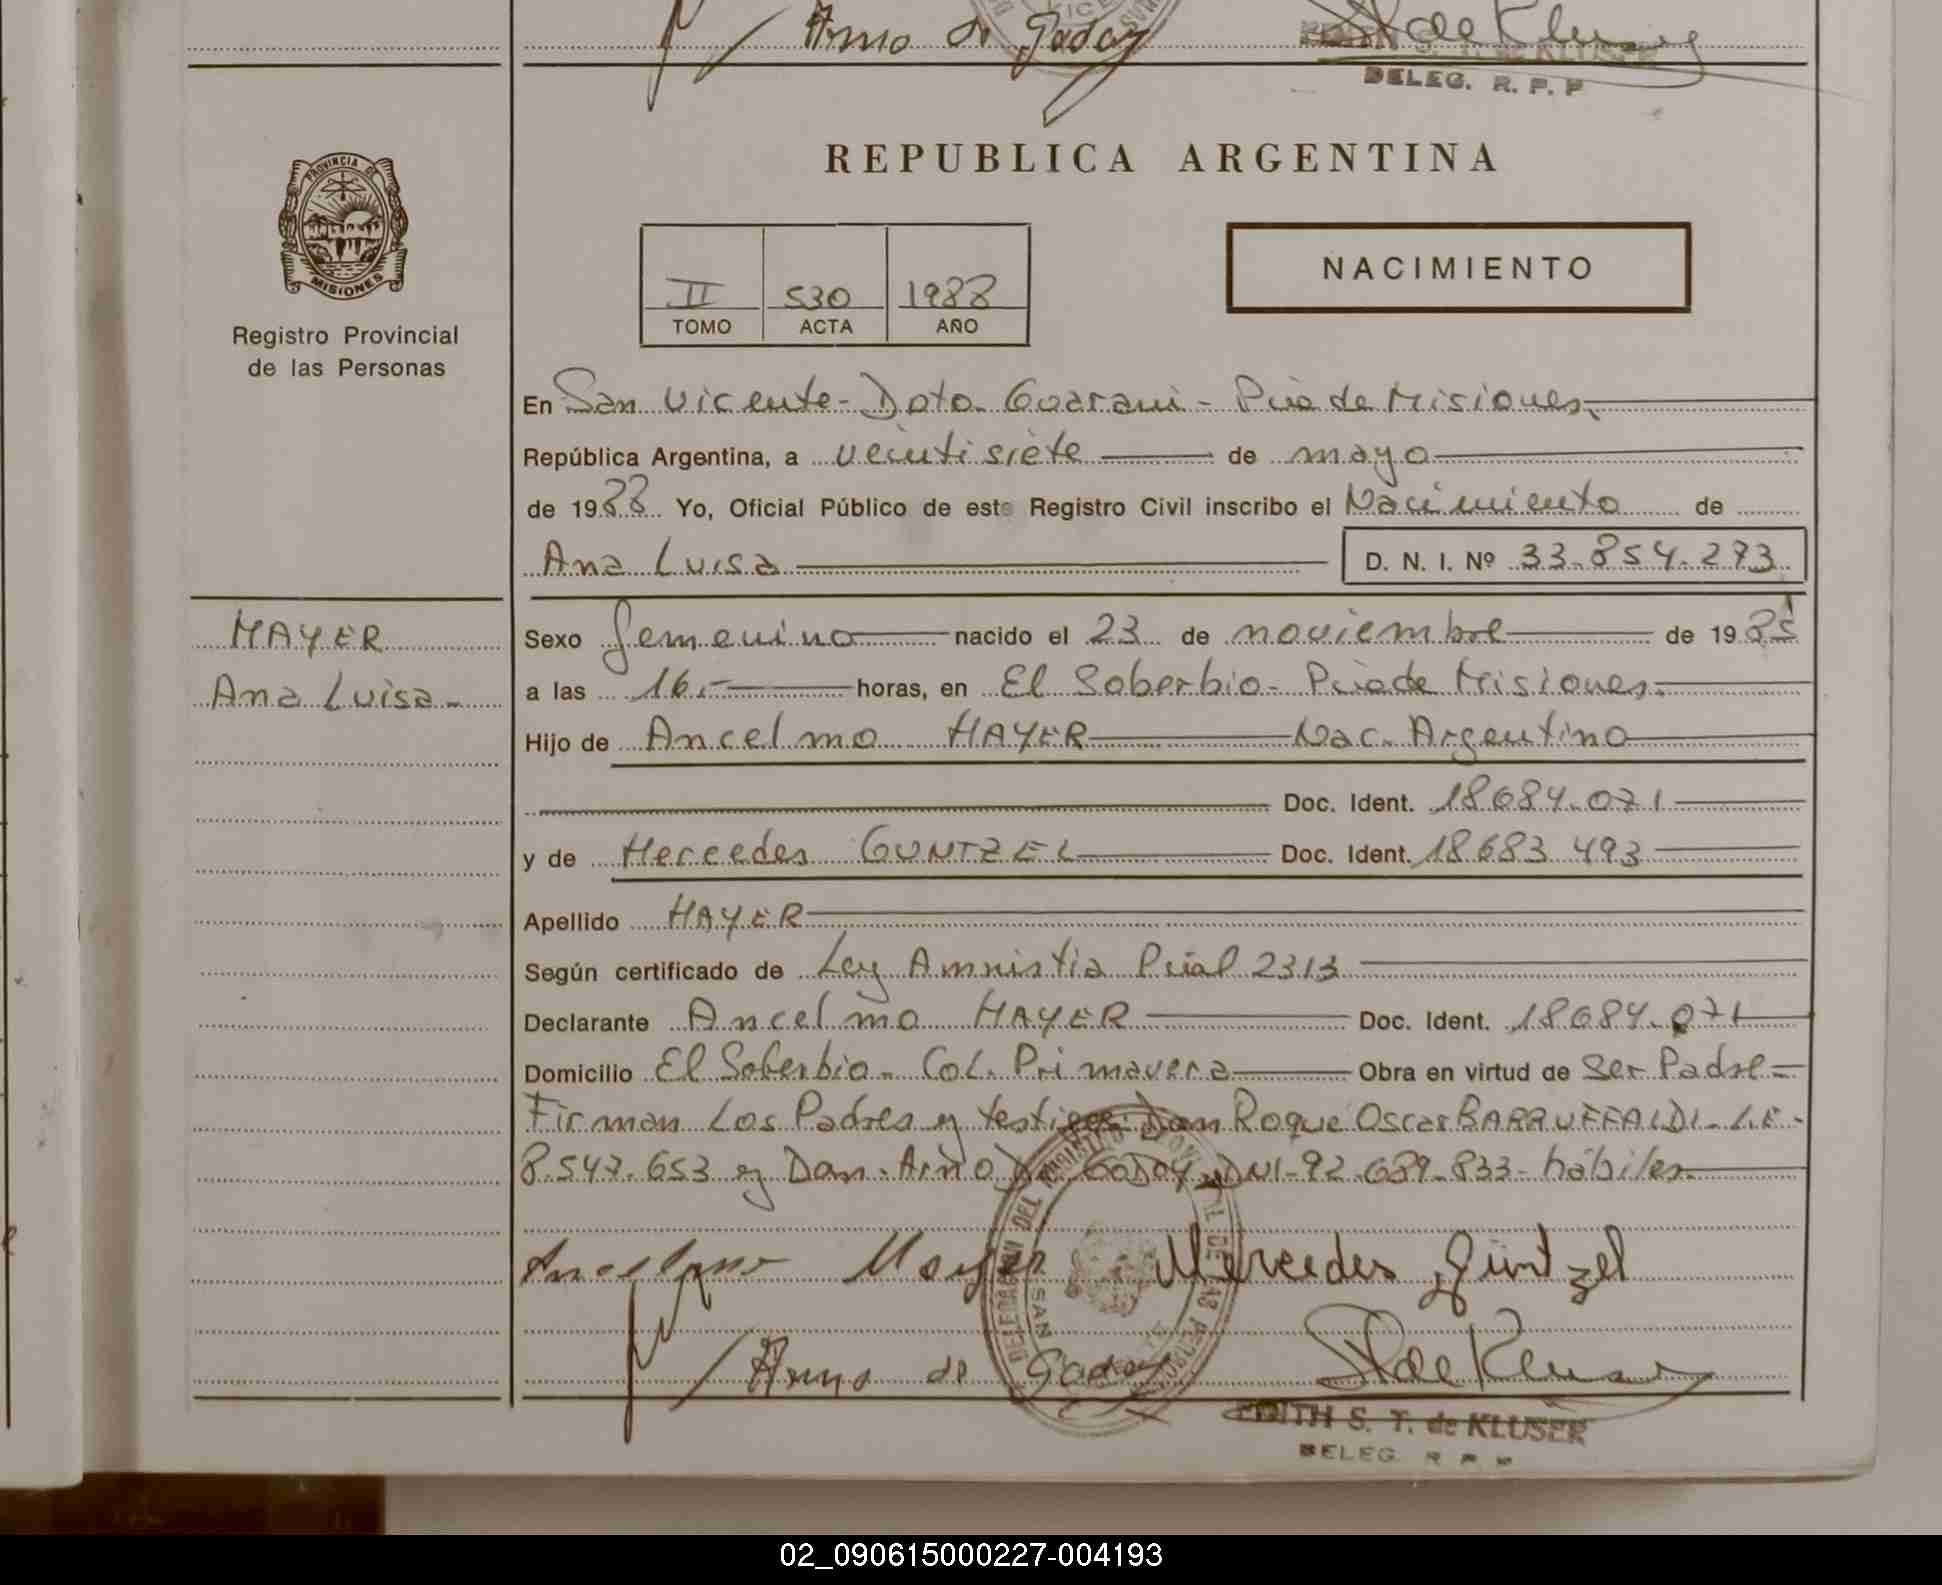 Arno de Godoy
S T de Kluser
DELEG. R. P. P
REPUBLICA ARGENTINA
PROVINCIA DE
MISIONES
Registro Provincial
de las Personas
II 530 1988
TOMO ACTA AÑO
NACIMIENTO
En San Vicente - Dpto. Guarani - Pcia de Misiones.
República Argentina, a veintisiete de mayo
de 1988 Yo, Oficial Público de este Registro Civil inscribo el Nacimiento de
Ana Luisa D. N. I. Nº 33.854.273
MAYER
Ana Luisa-
Sexo femenino nacido el 23 de noviembre de 1985
a las 16.- horas, en El Soberbio- Pciade Misiones.
Hijo de Ancelmo MAYER Nac. Argentino
Doc. Ident. 18684.071
y de Mercedes GUNTZEL Doc. Ident. 18683 493
Apellido MAYER
Según certificado de Ley Amnistia Pcial 2313
Declarante Ancelmo MAYER Doc. Ident. 18684.071
Domicilio El Soberbio- Col. Primavera Obra en virtud de Ser Padre=
Firman Los Padres y testigos: Don Roque Oscar BARRUFFALDI- L.E-
8.547.653 y Don. Arno De GODOY DNI-92.689.833- hábiles.
Ancelmo Mayer Mercedes Güntzel
Arno de Godoy S T de Kluser
EDITH S. T. de KLUSER
DELEG. R P P
02_090615000227-004193